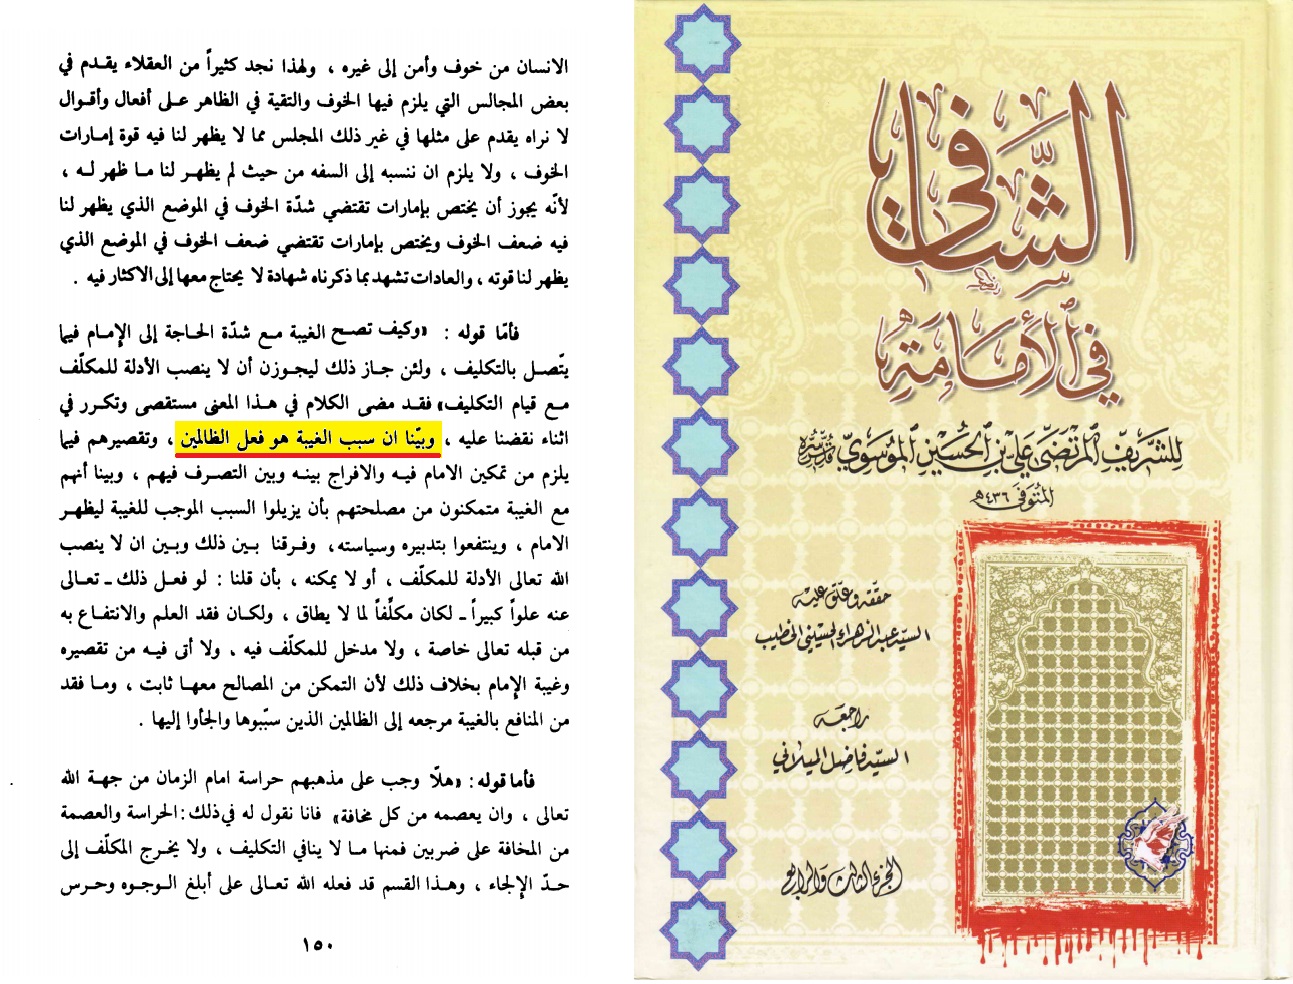 الانسان من خوف وأمن إلى غيره ، ولهذا نجد كثيراً من العقلاء يقدم في
بعض المجالس التي يلزم فيها الخوف والتقية في الظاهر على أفعال وأقوال
لا نراه يقدم على مثلها في غير ذلك المجلس مما لا يظهر لنا فيه قوة إمارات
الخوف ، ولا يلزم ان ننسبه إلى السفه من حيث لم يظهر لنا ما ظهر له ،
لأنّه يجوز أن يختص بإمارات تقتضي شدّة الخوف في الموضع الذي يظهر لنا
فيه ضعف الخوف ويختص بإمارات تقتضي ضعف الخوف في الموضع الذي
يظهر لنا قوته ، والعادات تشهد بما ذكرناه شهادة لا يحتاج معها إلى الاكثار فيه .
فأمّا قوله : «وكيف تصح الغيبة مع شدّة الحاجة إلى الإمام فيما
يتّصل بالتكليف ، ولئن جاز ذلك ليجوزن أن لا ينصب الأدلة للمكلّف
مع قيام التكليف» فقد مضى الكلام في هذا المعنى مستقصى وتكرر في
اثناء نقضنا عليه ، وبيّنا ان سبب الغيبة هو فعل الظالمين ، وتقصيرهم فيما
يلزم من تمكين الامام فيه والافراج بينه وبين التصرف فيهم ، وبينا أنهم
مع الغيبة متمكنون من مصلحتهم بأن يزيلوا السبب الموجب للغيبة ليظهر
الامام ، وينتفعوا بتدبيره وسياسته، وفرقنا بين ذلك وبين ان لا ينصب
الله تعالى الأدلة للمكلّف ، أو لا يمكنه ، بأن قلنا : لو فعل ذلك ـ تعالى
عنه علواً كبيراً ـ لكان مكلِّفاً لما لا يطاق ، ولكان فقد العلم والانتفاع به
من قبله تعالى خاصة ، ولا مدخل للمكلّف فيه ، ولا أتى فيه من تقصيره
وغيبة الإمام بخلاف ذلك لأن التمكن من المصالح معها ثابت ، وما فقد
من المنافع بالغيبة مرجعه إلى الظالمين الذين سبّبوها والجأوا إليها .
فأما قوله : «هلّا وجب على مذهبهم حراسة امام الزمان من جهة الله
تعالى ، وان يعصمه من كل مخافة» فانا نقول له في ذلك : الحراسة والعصمة
من المخافة على ضربين فمنها ما لا ينافي التكليف ، ولا يخرج المكلّف إلى
حدّ الإلجاء ، وهذا القسم قد فعله الله تعالى على أبلغ الوجوه وحرس
١٥٠
الشَّافي
في الإمامة
للشريف المرتضى علي بن الحسين الموسوي قدس سره
المتوفى ٤٣٦ هـ
حققه وعلق عليه
السيد عبد الزهراء الحسيني الخطيب
راجعه
السيد فاضل الميلاني
الجزء الثالث والرابع